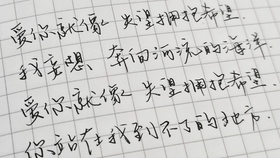 爱你就像 失望拥抱希望
我妄想 奔向河流的海洋.
爱你就像 失望拥抱希望.
你站在我到不了的地方.